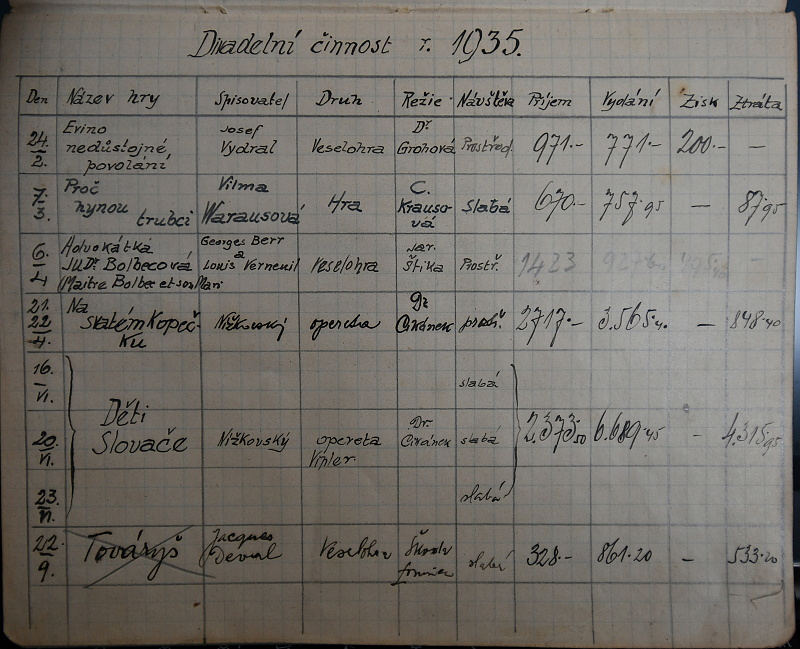 Divadelní činnost r. 1935.
Den Název hry Spisovatel Druh Režie Návštěva Příjem Vydání Zisk Ztráta
24. 2. Evino nedůstojné povolání Josef Vydral Veselohra Dr. Grohová Prostřed. 971.- 771.- 200.- —
7. 3. Proč hynou trubci Vilma Warausová Hra C. Krausová Slabá 670.- 757.95 — 87.95
6. 4 Advokátka JUDr Bolbecová Maitre Bolbec et son Mari Georges Berr a Louis Verneuil Veselohra Jar. Štika Prostř. 1423
21. 22 4. Na svatém Kopečku Nižkovský opereta Dr Cikánek prostř. 2717.- 3.565.40 — 848.40
16. VI. slabá
20. VI. Děti Slovače Nižkovský opereta Dr. Cikánek slabá 2.373.50 6.689.45 — 4.315.95
23. VI. slabá
22 9. Tovaryš Jacques Deval Veselohra Škoda slabá 328.- 861.20 — 533.20